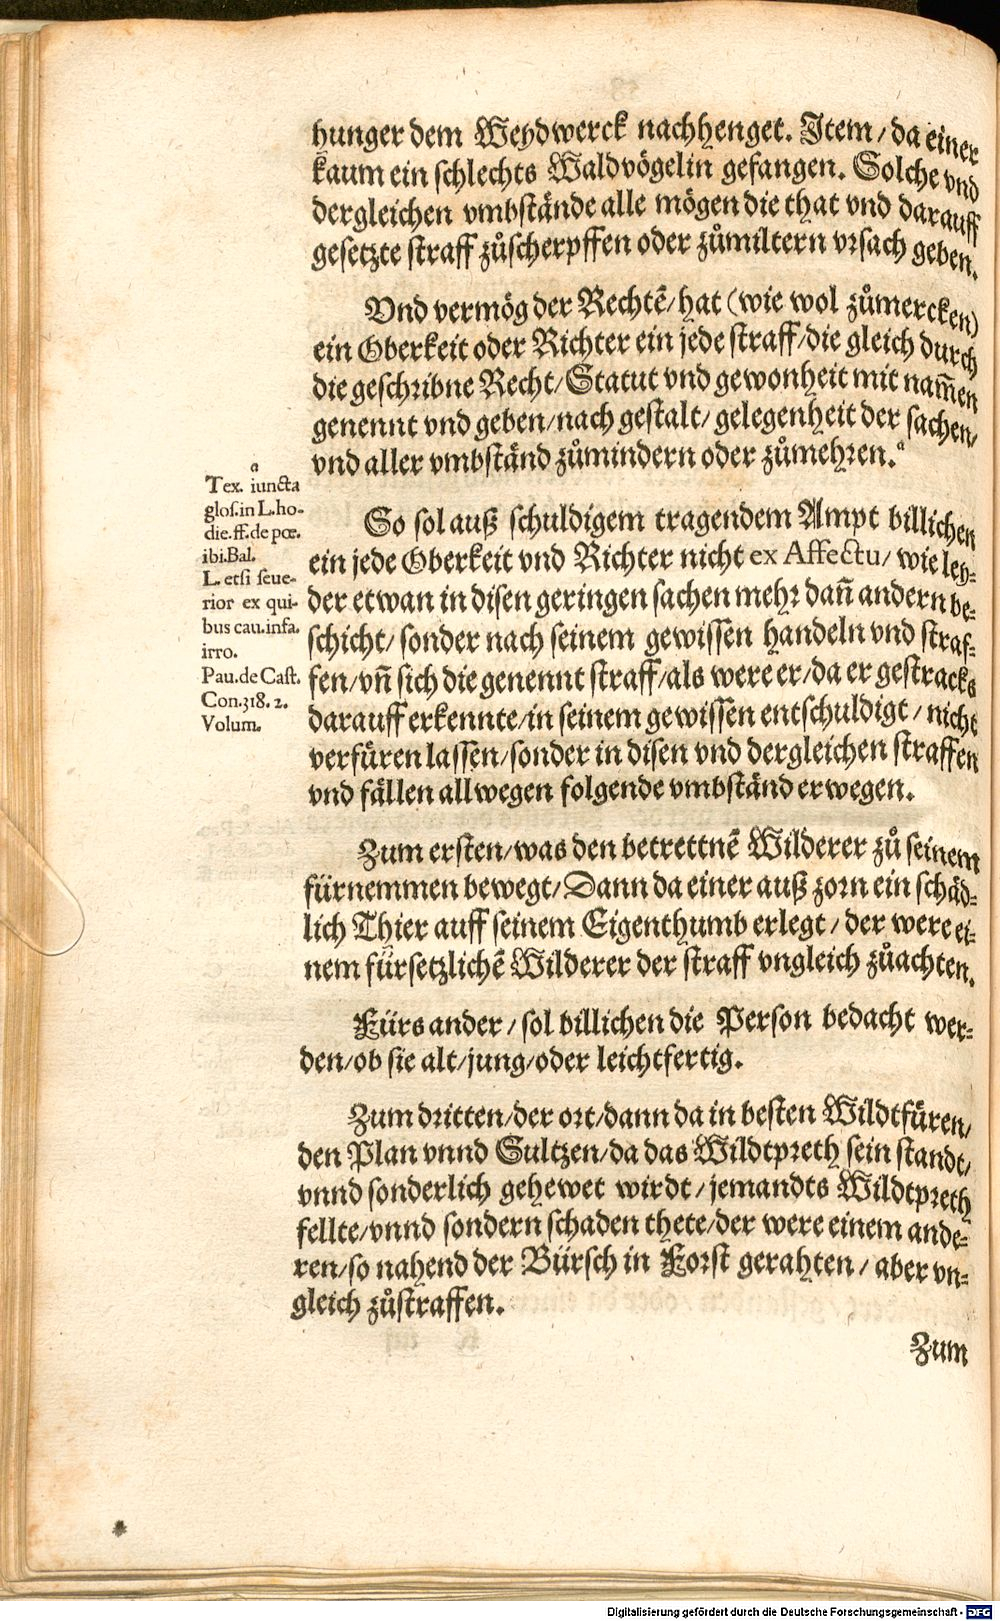 hunger dem Weydwerck nachhenget. Item / da einer
kaum ein schlechts Waldvögelin gefangen. Solche vnd
dergleichen vmbstände alle mögen die that vnd darauff
gesetzte straff zůscherpffen oder zůmiltern vrsach geben.
Vnd vermög der Rechtē / hat (wie wol zůmercken)
ein Oberkeit oder Richter ein jede straff / die gleich durch
die geschribne Recht / Statut vnd gewonheit mit nam̄en
genennt vnd geben / nach gestalt / gelegenheit der sachen /
vnd aller vmbständ zůmindern oder zůmehren. a
a
Tex. iuncta
glos. in L. ho-
die. ff. de pœ.
ibi. Bal.
L. etsi seue-
rior ex qui-
bus cau. infa.
irro.
Pau. de Cast.
Con. 318. 2.
Volum.
So sol auß schuldigem tragendem Ampt billichen
ein jede Oberkeit vnd Richter nicht ex Affectu / wie ley-
der etwan in disen geringen sachen mehr dañ andern be-
schicht / sonder nach seinem gewissen handeln vnd straf-
fen / vñ sich die genennt straff / als were er / da er gestracks
darauff erkennte / in seinem gewissen entschuldigt / nicht
verfüren lassen / sonder in disen vnd dergleichen straffen
vnd fällen allwegen folgende vmbständ erwegen.
Zum ersten / was den betrettnē Wilderer zů seinem
fürnemmen bewegt / Dann da einer auß zorn ein schäd-
lich Thier auff seinem Eigenthumb erlegt / der were ei-
nem fürsetzlichē Wilderer der straff vngleich zůachten.
Fürs ander / sol billichen die Person bedacht wer-
den / ob sie alt / jung / oder leichtfertig.
Zum dritten / der ort / dann da in besten Wildtfüren /
den Plan vnnd Sultzen / da das Wildtpreth sein standt /
vnnd sonderlich gehewet wirdt / jemandts Wildtpreth
fellte / vnnd sondern schaden thete / der were einem ande-
ren / so nahend der Bürsch in Forst gerahten / aber vn-
gleich zůstraffen.
Zum
Digitalisierung gefördert durch die Deutsche Forschungsgemeinschaft - DFG